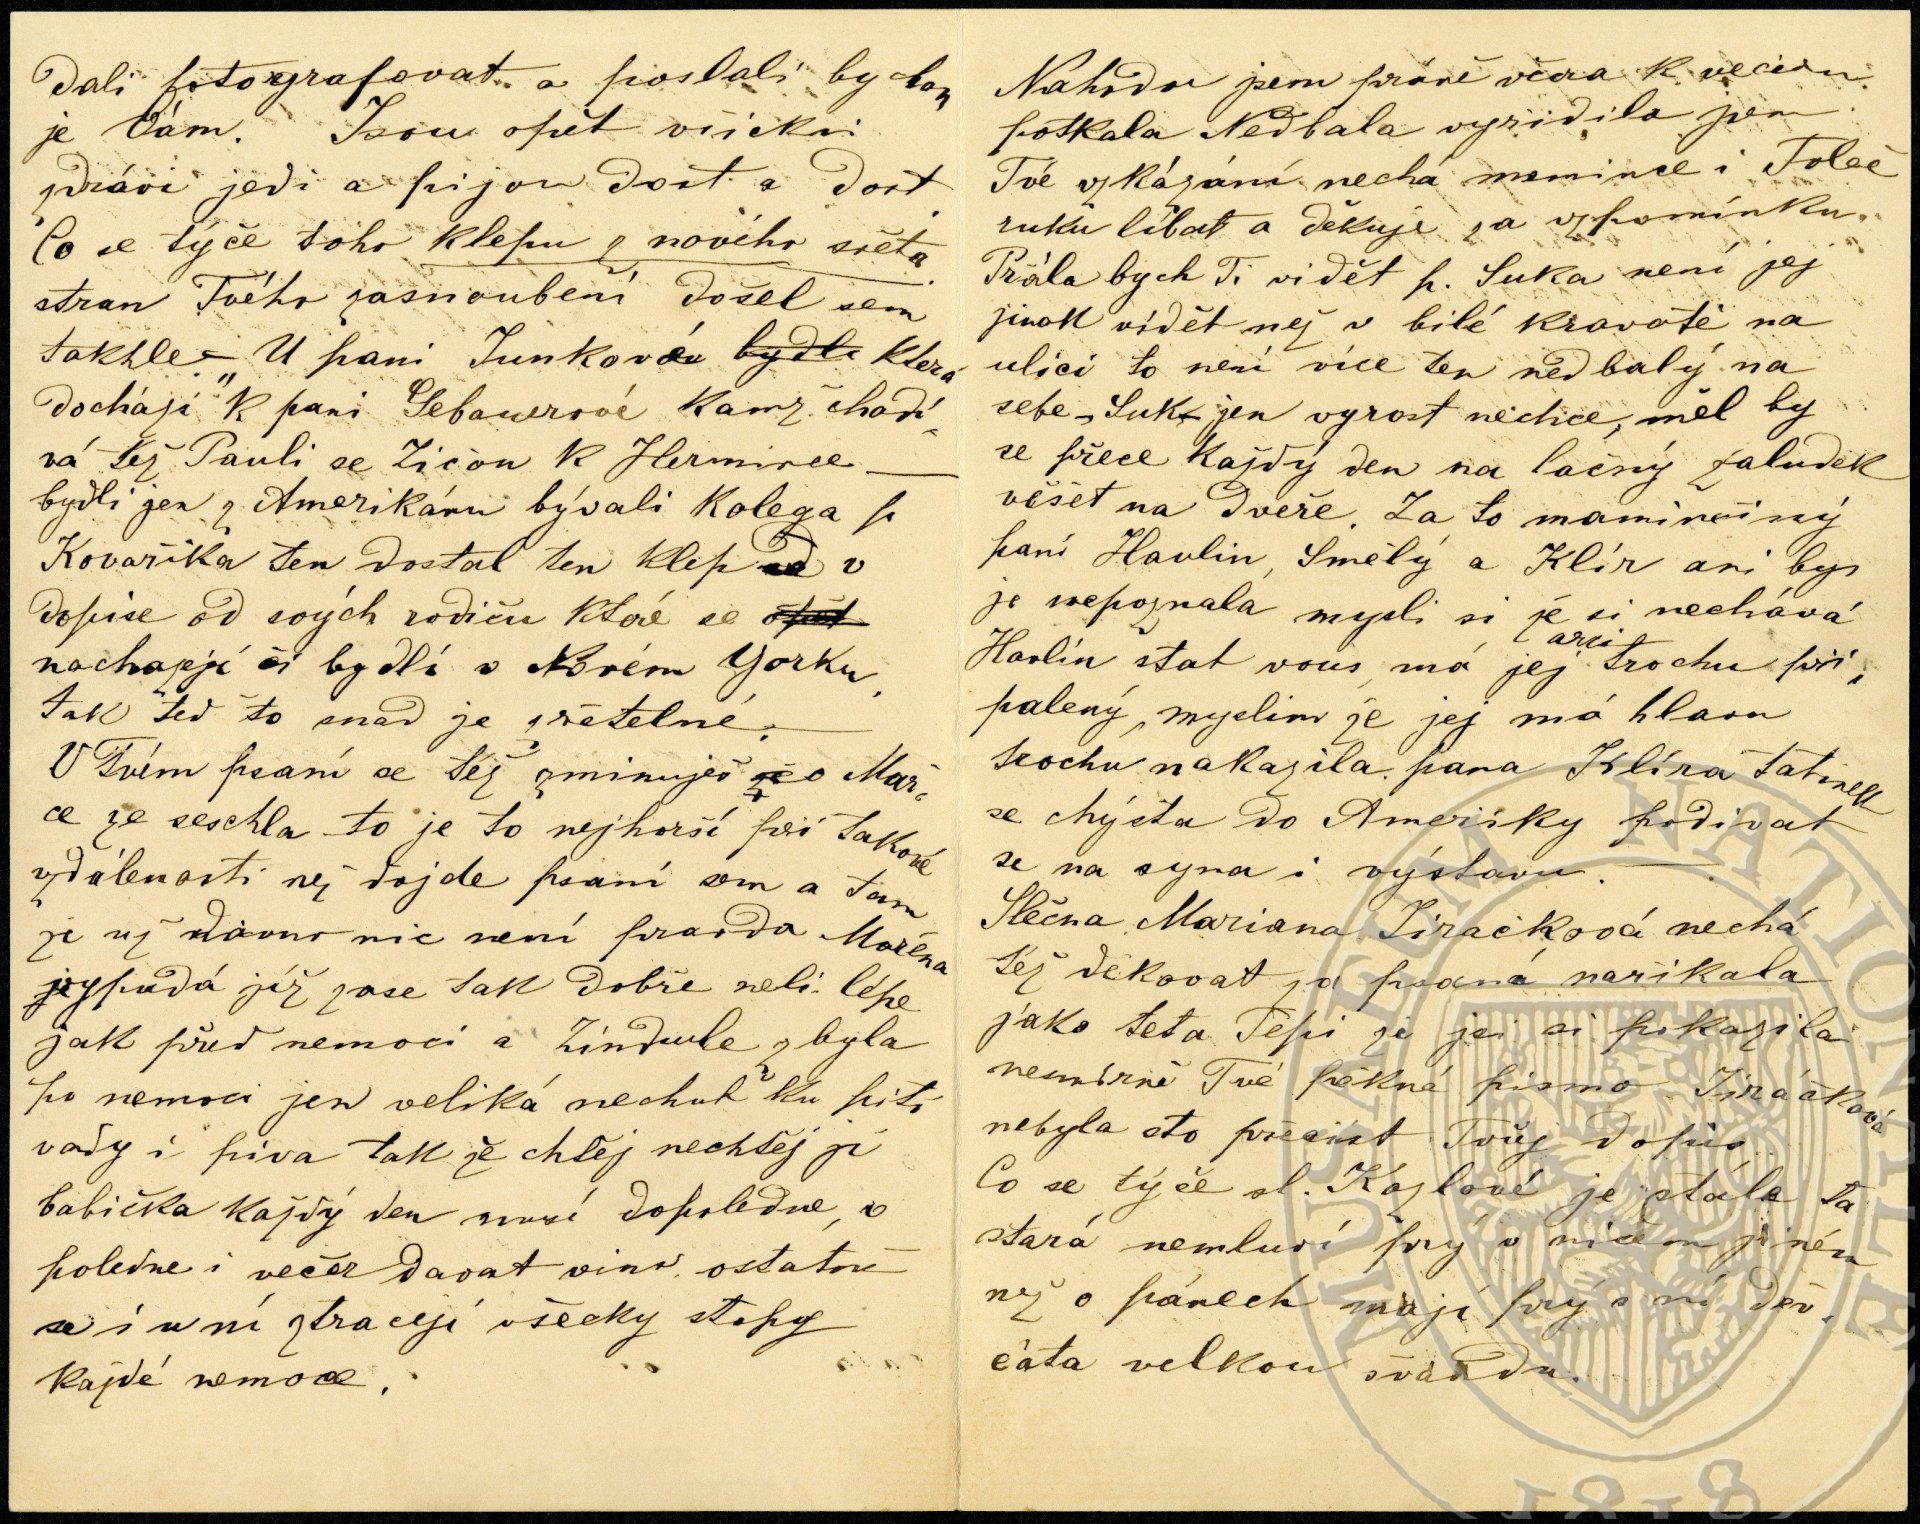 dali fotografovat a poslali bychom
je Vám. Jsou opět všickni
zdrávi jedí a pijou dost a dost.
Co se týče toho klepu z nového světa
stran Tvého zasnoubení došel sem
takhle = U paní Junkové bydlí která
dochází "k paní Gebauerové kamž chodí-
vá též Pauli se Zičou k Hermince —
bydlí jen z Amerikánu bývalí kolega p
Kovaříka ten dostal ten klep v
dopise od svých rodičů které se opět
nachazejí či bydlí v Novém Yorku,
tak teď to snad je zřetelné. —
V Tvém psaní se též zminuješ že o Mař-
ce že seschla to je to nejhorší při takové
vzdálenosti než dojde psaní sem a tam
je už dávno nic není pravda Mařena
vypadá již zase tak dobře neli lépe
jak před nemocí a Zindule zbyla
po nemoci jen veliká nechuť ku pití
vody i piva tak že chtěj nechtěj jí
babička každý den musí dopoledne, v
poledne i večer davat vino. ostatně
se i u ní ztracejí všecky stopy
každé nemoce.
Nahodou jsem právě včera k večeru
potkala Nedbala vyřidila jsem
Tvé vzkázání nechá mamince i Tobě
ruku líbat a děkuje za vzpomínku.
Přála bych Ti vidět p. Suka není jej
jinak vidět než v bilé kravatě na
ulici to není více ten nedbalý na
sebe Suk jen vyrost nechce, měl by
se přece každý den na lačný žaludek
věšet na dveře. Za to maminčiný
paní Havlin, Smělý a Klír ani bys
je nepoznala mysli si že si nechává
Havlín stat vous, má jej arci trochu při-
palený, myslim že jej má hlavu
trochu nakazila. pana Klíra tatínek
se chýsta do Ameriky podivat
se na syna i výstavu. —
Slečna Mariana Jiračková nechá
též děkovat za psaní naříkala
jako teta Pepi že jsi si pokazila
nesmírně Tvé pěkné písmo Jiráčková
nebyla sto přečíst Tvůj dopis.
Co se týče sl. Kozlové je stále ta
stará nemluví prý o ničem jiném
než o pánech mají prý s ní děv-
čata velkou švandu.